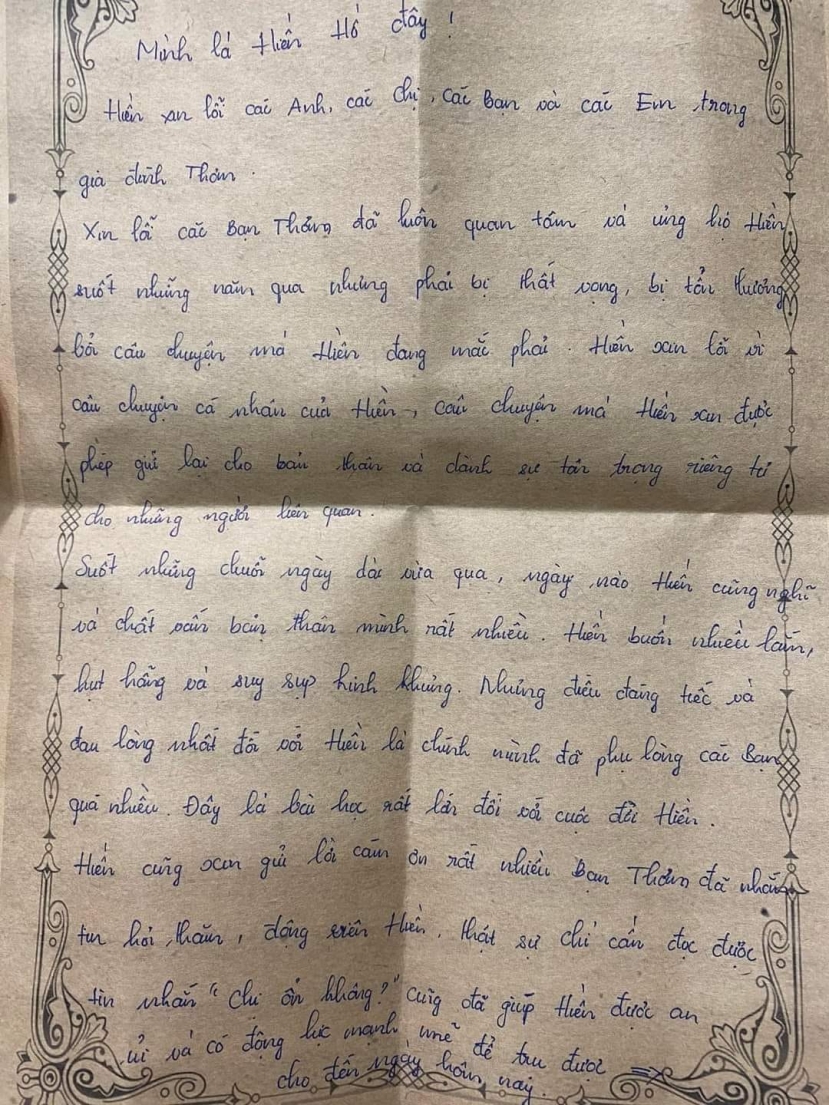 Mình là Hiền Hồ đây!
Hiền xin lỗi các Anh, các chị, các Bạn và các Em trong
gia đình Thơm.
Xin lỗi các Bạn Thơm đã luôn quan tâm và ủng hộ Hiền
suốt những năm qua nhưng phải bị thất vọng, bị tổn thương
bởi câu chuyện mà Hiền đang mắc phải. Hiền xin lỗi vì
câu chuyện cá nhân của Hiền, câu chuyện mà Hiền xin được
phép giữ lại cho bản thân và dành sự tôn trọng riêng tư
cho những người liên quan.
Suốt những chuỗi ngày dài vừa qua, ngày nào Hiền cũng nghĩ
và chất vấn bản thân mình rất nhiều. Hiền buồn nhiều lắm,
hụt hẫng và suy sụp kinh khủng. Nhưng điều đáng tiếc và
đau lòng nhất đối với Hiền là chính mình đã phụ lòng các Bạn
quá nhiều. Đây là bài học rất lớn đối với cuộc đời Hiền.
Hiền cũng xin gửi lời cảm ơn rất nhiều Bạn Thơm đã nhắn
tin hỏi thăm, động viên Hiền. Thật sự chỉ cần đọc được
tin nhắn "Chị ổn không?" cũng đã giúp Hiền được an
ủi và có động lực mạnh mẽ để trụ được ⇒
cho đến ngày hôm nay.